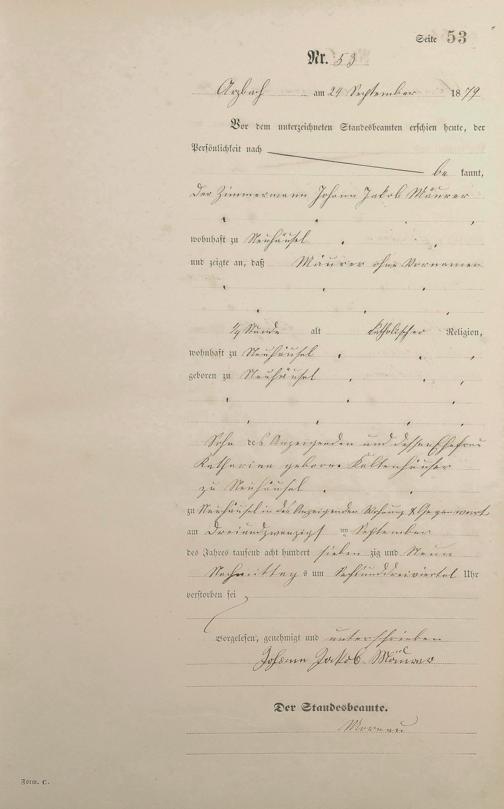 Seite 53
Nr. 53
Arzbach am 24 September 1879
Vor dem unterzeichneten Standesbeamten erschien heute, der
Persönlichkeit nach
be kannt,
der Zimmermann Johann Jakob Mäurer
wohnhaft zu Neuhäusel
und zeigte an, daß Mäurer ohne Vornamen
1/4 Stunde alt katholischer Religion,
wohnhaft zu Neuhäusel
geboren zu Neuhäusel
Sohn des Anzeigenden und dessen Ehefrau
Katharina geborne Kaltenhäuser
zu Neuhäusel
zu Neuhäusel in des Anzeigenden Wohnung & Gegenwart
am dreiundzwanzigst en September
des Jahres tausend acht hundert sieben zig und neun
Nachmittag s um sechs und dreiviertel Uhr
verstorben sei
Vorgelesen, genehmigt und unterschrieben
Johann Jakob Mäurer
Der Standesbeamte.
Form. C.